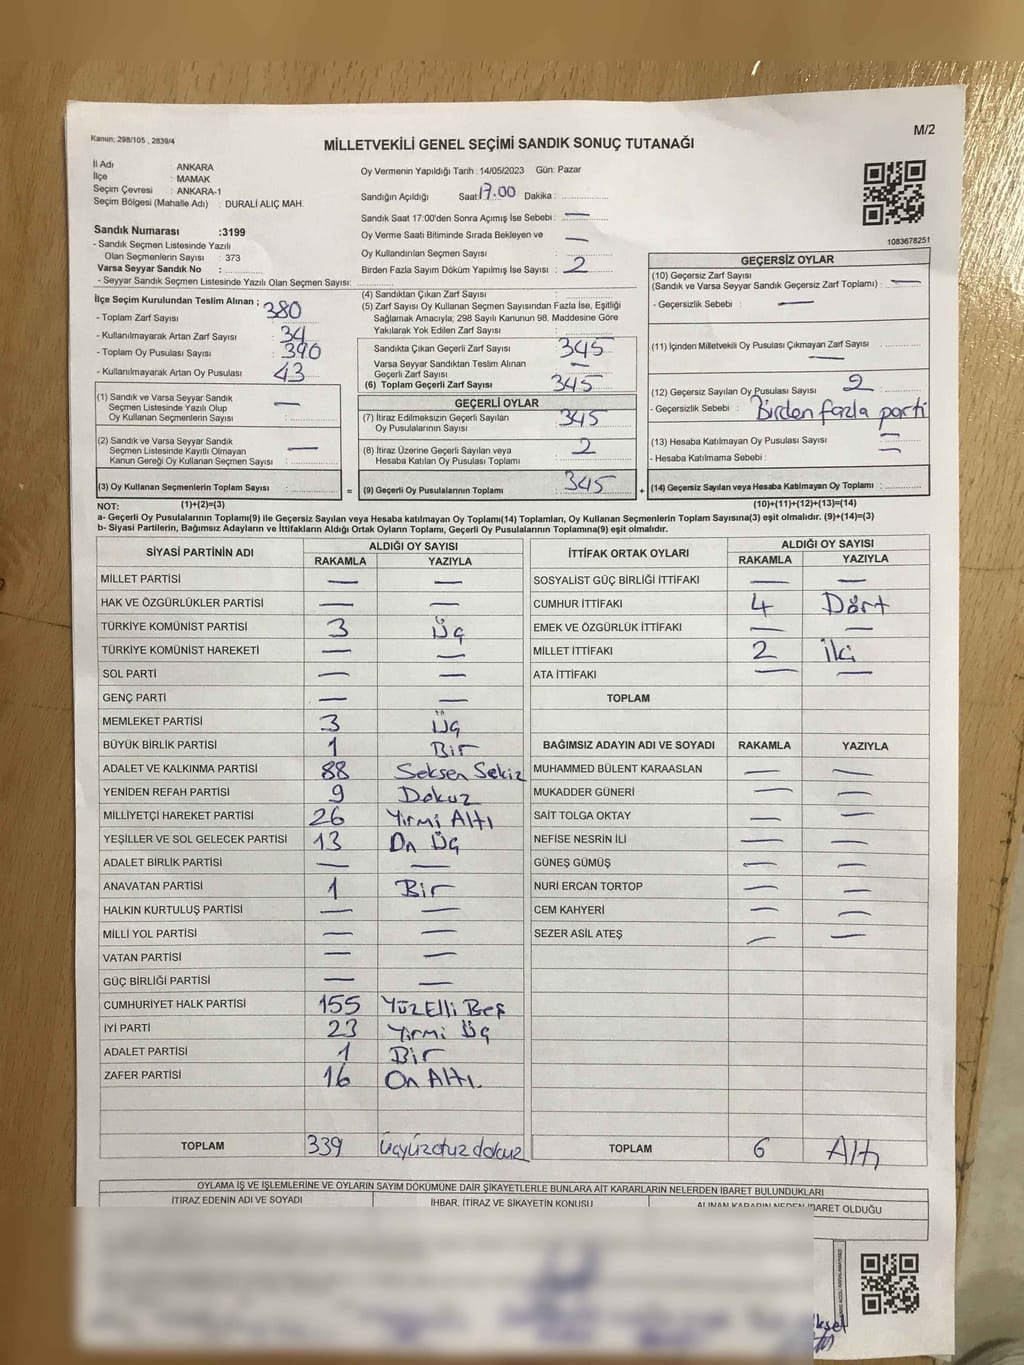 Kanun: 298/105 , 2839/4
M/2
MİLLETVEKİLİ GENEL SEÇİMİ SANDIK SONUÇ TUTANAĞI
İl Adı : ANKARA
İlçe : MAMAK
Seçim Çevresi : ANKARA-1
Seçim Bölgesi (Mahalle Adı) : DURALİ ALIÇ MAH.
Sandık Numarası :3199
- Sandık Seçmen Listesinde Yazılı
Olan Seçmenlerin Sayısı : 373
Varsa Seyyar Sandık No :
- Seyyar Sandık Seçmen Listesinde Yazılı Olan Seçmen Sayısı:
Oy Vermenin Yapıldığı Tarih : 14/05/2023 Gün: Pazar
Sandığın Açıldığı Saat 17.00 Dakika :
Sandık Saat 17:00'den Sonra Açımış İse Sebebi : —
Oy Verme Saati Bitiminde Sırada Bekleyen ve
Oy Kullandırılan Seçmen Sayısı : —
Birden Fazla Sayım Döküm Yapılmış İse Sayısı : 2
1083678251
İlçe Seçim Kurulundan Teslim Alınan ;
- Toplam Zarf Sayısı : 380
- Kullanılmayarak Artan Zarf Sayısı : 34
- Toplam Oy Pusulası Sayısı : 390
- Kullanılmayarak Artan Oy Pusulası : 43
(1) Sandık ve Varsa Seyyar Sandık
Seçmen Listesinde Yazılı Olup
Oy Kullanan Seçmenlerin Sayısı : —
(2) Sandık ve Varsa Seyyar Sandık
Seçmen Listesinde Kayıtlı Olmayan
Kanun Gereği Oy Kullanan Seçmen Sayısı : —
(3) Oy Kullanan Seçmenlerin Toplam Sayısı :
(4) Sandıktan Çıkan Zarf Sayısı :
(5) Zarf Sayısı Oy Kullanan Seçmen Sayısından Fazla İse, Eşitliği
Sağlamak Amacıyla; 298 Sayılı Kanunun 98. Maddesine Göre
Yakılarak Yok Edilen Zarf Sayısı :
Sandıkta Çıkan Geçerli Zarf Sayısı : 345
Varsa Seyyar Sandıktan Teslim Alınan
Geçerli Zarf Sayısı : —
(6) Toplam Geçerli Zarf Sayısı : 345
GEÇERLİ OYLAR
(7) İtiraz Edilmeksizin Geçerli Sayılan
Oy Pusulalarının Sayısı : 345
(8) İtiraz Üzerine Geçerli Sayılan veya
Hesaba Katılan Oy Pusulası Toplamı : 2
= (9) Geçerli Oy Pusulalarının Toplamı : 345 +
GEÇERSİZ OYLAR
(10) Geçersiz Zarf Sayısı
(Sandık ve Varsa Seyyar Sandık Geçersiz Zarf Toplamı) : —
- Geçersizlik Sebebi : —
(11) İçinden Milletvekili Oy Pusulası Çıkmayan Zarf Sayısı : —
(12) Geçersiz Sayılan Oy Pusulası Sayısı : 2
- Geçersizlik Sebebi : Birden fazla parti
(13) Hesaba Katılmayan Oy Pusulası Sayısı : —
- Hesaba Katılmama Sebebi : —
(14) Geçersiz Sayılan veya Hesaba Katılmayan Oy Toplamı :
NOT: (1)+(2)=(3) (10)+(11)+(12)+(13)=(14)
a- Geçerli Oy Pusulalarının Toplamı(9) ile Geçersiz Sayılan veya Hesaba katılmayan Oy Toplamı(14) Toplamları, Oy Kullanan Seçmenlerin Toplam Sayısına(3) eşit olmalıdır. (9)+(14)=(3)
b- Siyasi Partilerin, Bağımsız Adayların ve İttifakların Aldığı Ortak Oyların Toplamı, Geçerli Oy Pusulalarının Toplamına(9) eşit olmalıdır.
SİYASİ PARTİNİN ADI ALDIĞI OY SAYISI
RAKAMLA YAZIYLA
MİLLET PARTİSİ — —
HAK VE ÖZGÜRLÜKLER PARTİSİ — —
TÜRKİYE KOMÜNİST PARTİSİ 3 Üç
TÜRKİYE KOMÜNİST HAREKETİ — —
SOL PARTİ — —
GENÇ PARTİ — —
MEMLEKET PARTİSİ 3 Üç
BÜYÜK BİRLİK PARTİSİ 1 Bir
ADALET VE KALKINMA PARTİSİ 88 Seksen Sekiz
YENİDEN REFAH PARTİSİ 9 Dokuz
MİLLİYETÇİ HAREKET PARTİSİ 26 Yirmi Altı
YEŞİLLER VE SOL GELECEK PARTİSİ 13 On Üç
ADALET BİRLİK PARTİSİ — —
ANAVATAN PARTİSİ 1 Bir
HALKIN KURTULUŞ PARTİSİ — —
MİLLİ YOL PARTİSİ — —
VATAN PARTİSİ — —
GÜÇ BİRLİĞİ PARTİSİ — —
CUMHURİYET HALK PARTİSİ 155 Yüz Elli Beş
İYİ PARTİ 23 Yirmi Üç
ADALET PARTİSİ 1 Bir
ZAFER PARTİSİ 16 On Altı.
TOPLAM 339 Üçyüzotuzdokuz
İTTİFAK ORTAK OYLARI ALDIĞI OY SAYISI
RAKAMLA YAZIYLA
SOSYALİST GÜÇ BİRLİĞİ İTTİFAKI — —
CUMHUR İTTİFAKI 4 Dört
EMEK VE ÖZGÜRLÜK İTTİFAKI — —
MİLLET İTTİFAKI 2 İki
ATA İTTİFAKI — —
TOPLAM
BAĞIMSIZ ADAYIN ADI VE SOYADI RAKAMLA YAZIYLA
MUHAMMED BÜLENT KARAASLAN — —
MUKADDER GÜNERİ — —
SAİT TOLGA OKTAY — —
NEFİSE NESRİN İLİ — —
GÜNEŞ GÜMÜŞ — —
NURİ ERCAN TORTOP — —
CEM KAHYERİ — —
SEZER ASİL ATEŞ — —
TOPLAM 6 Altı
OYLAMA İŞ VE İŞLEMLERİNE VE OYLARIN SAYIM DÖKÜMÜNE DAİR ŞİKAYETLERLE BUNLARA AİT KARARLARIN NELERDEN İBARET BULUNDUKLARI
İTİRAZ EDENİN ADI VE SOYADI İHBAR, İTİRAZ VE ŞİKAYETİN KONUSU ALINAN KARARIN NEDEN İBARET OLDUĞU